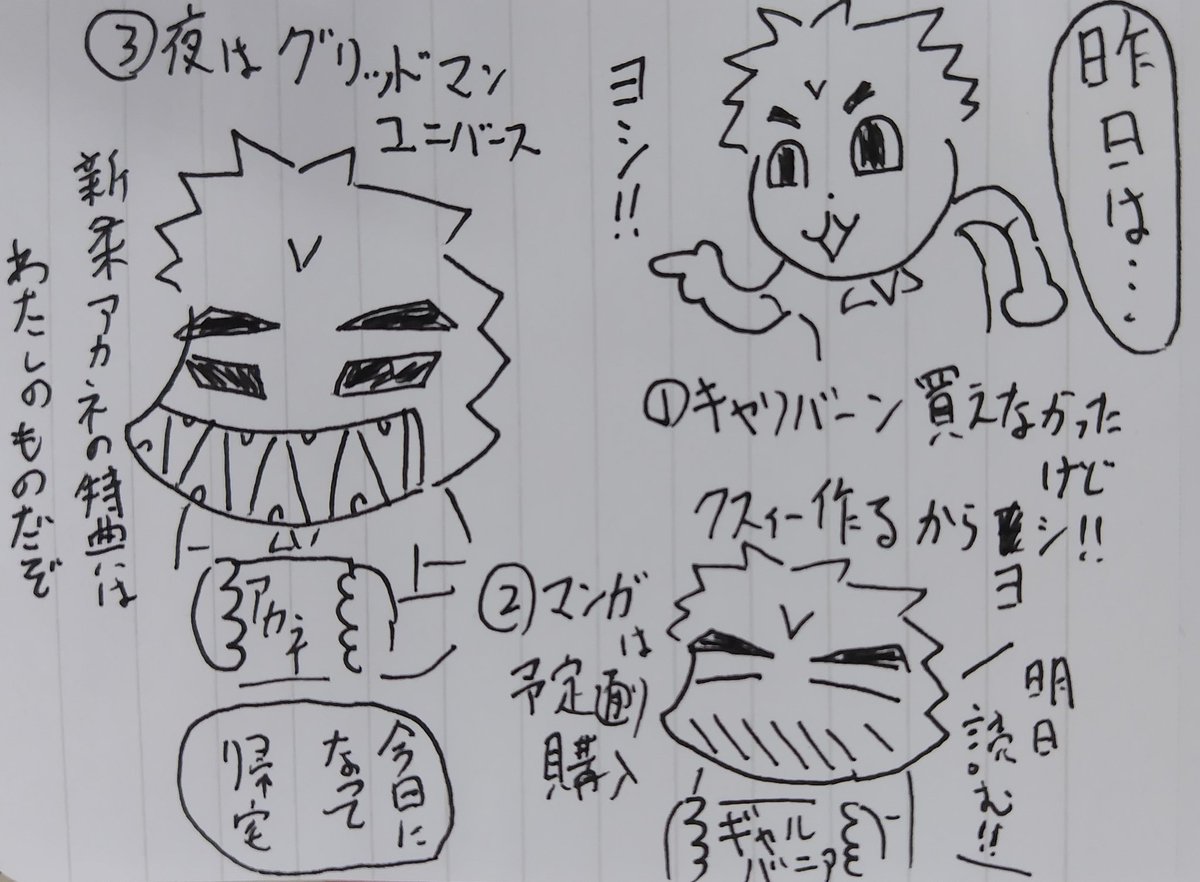 昨日は…
ヨシ!!
①キャリバーン買えなかった
けど
クスィー作るから
ヨシ!!
②マンガ
は
予定通り
購入
明日
読む!!
ギャル
バニア
③夜はグリッドマン
ユニバース
新条アカネの特典は
わたしのものだぞ
アカネ
今日に
なって
帰宅